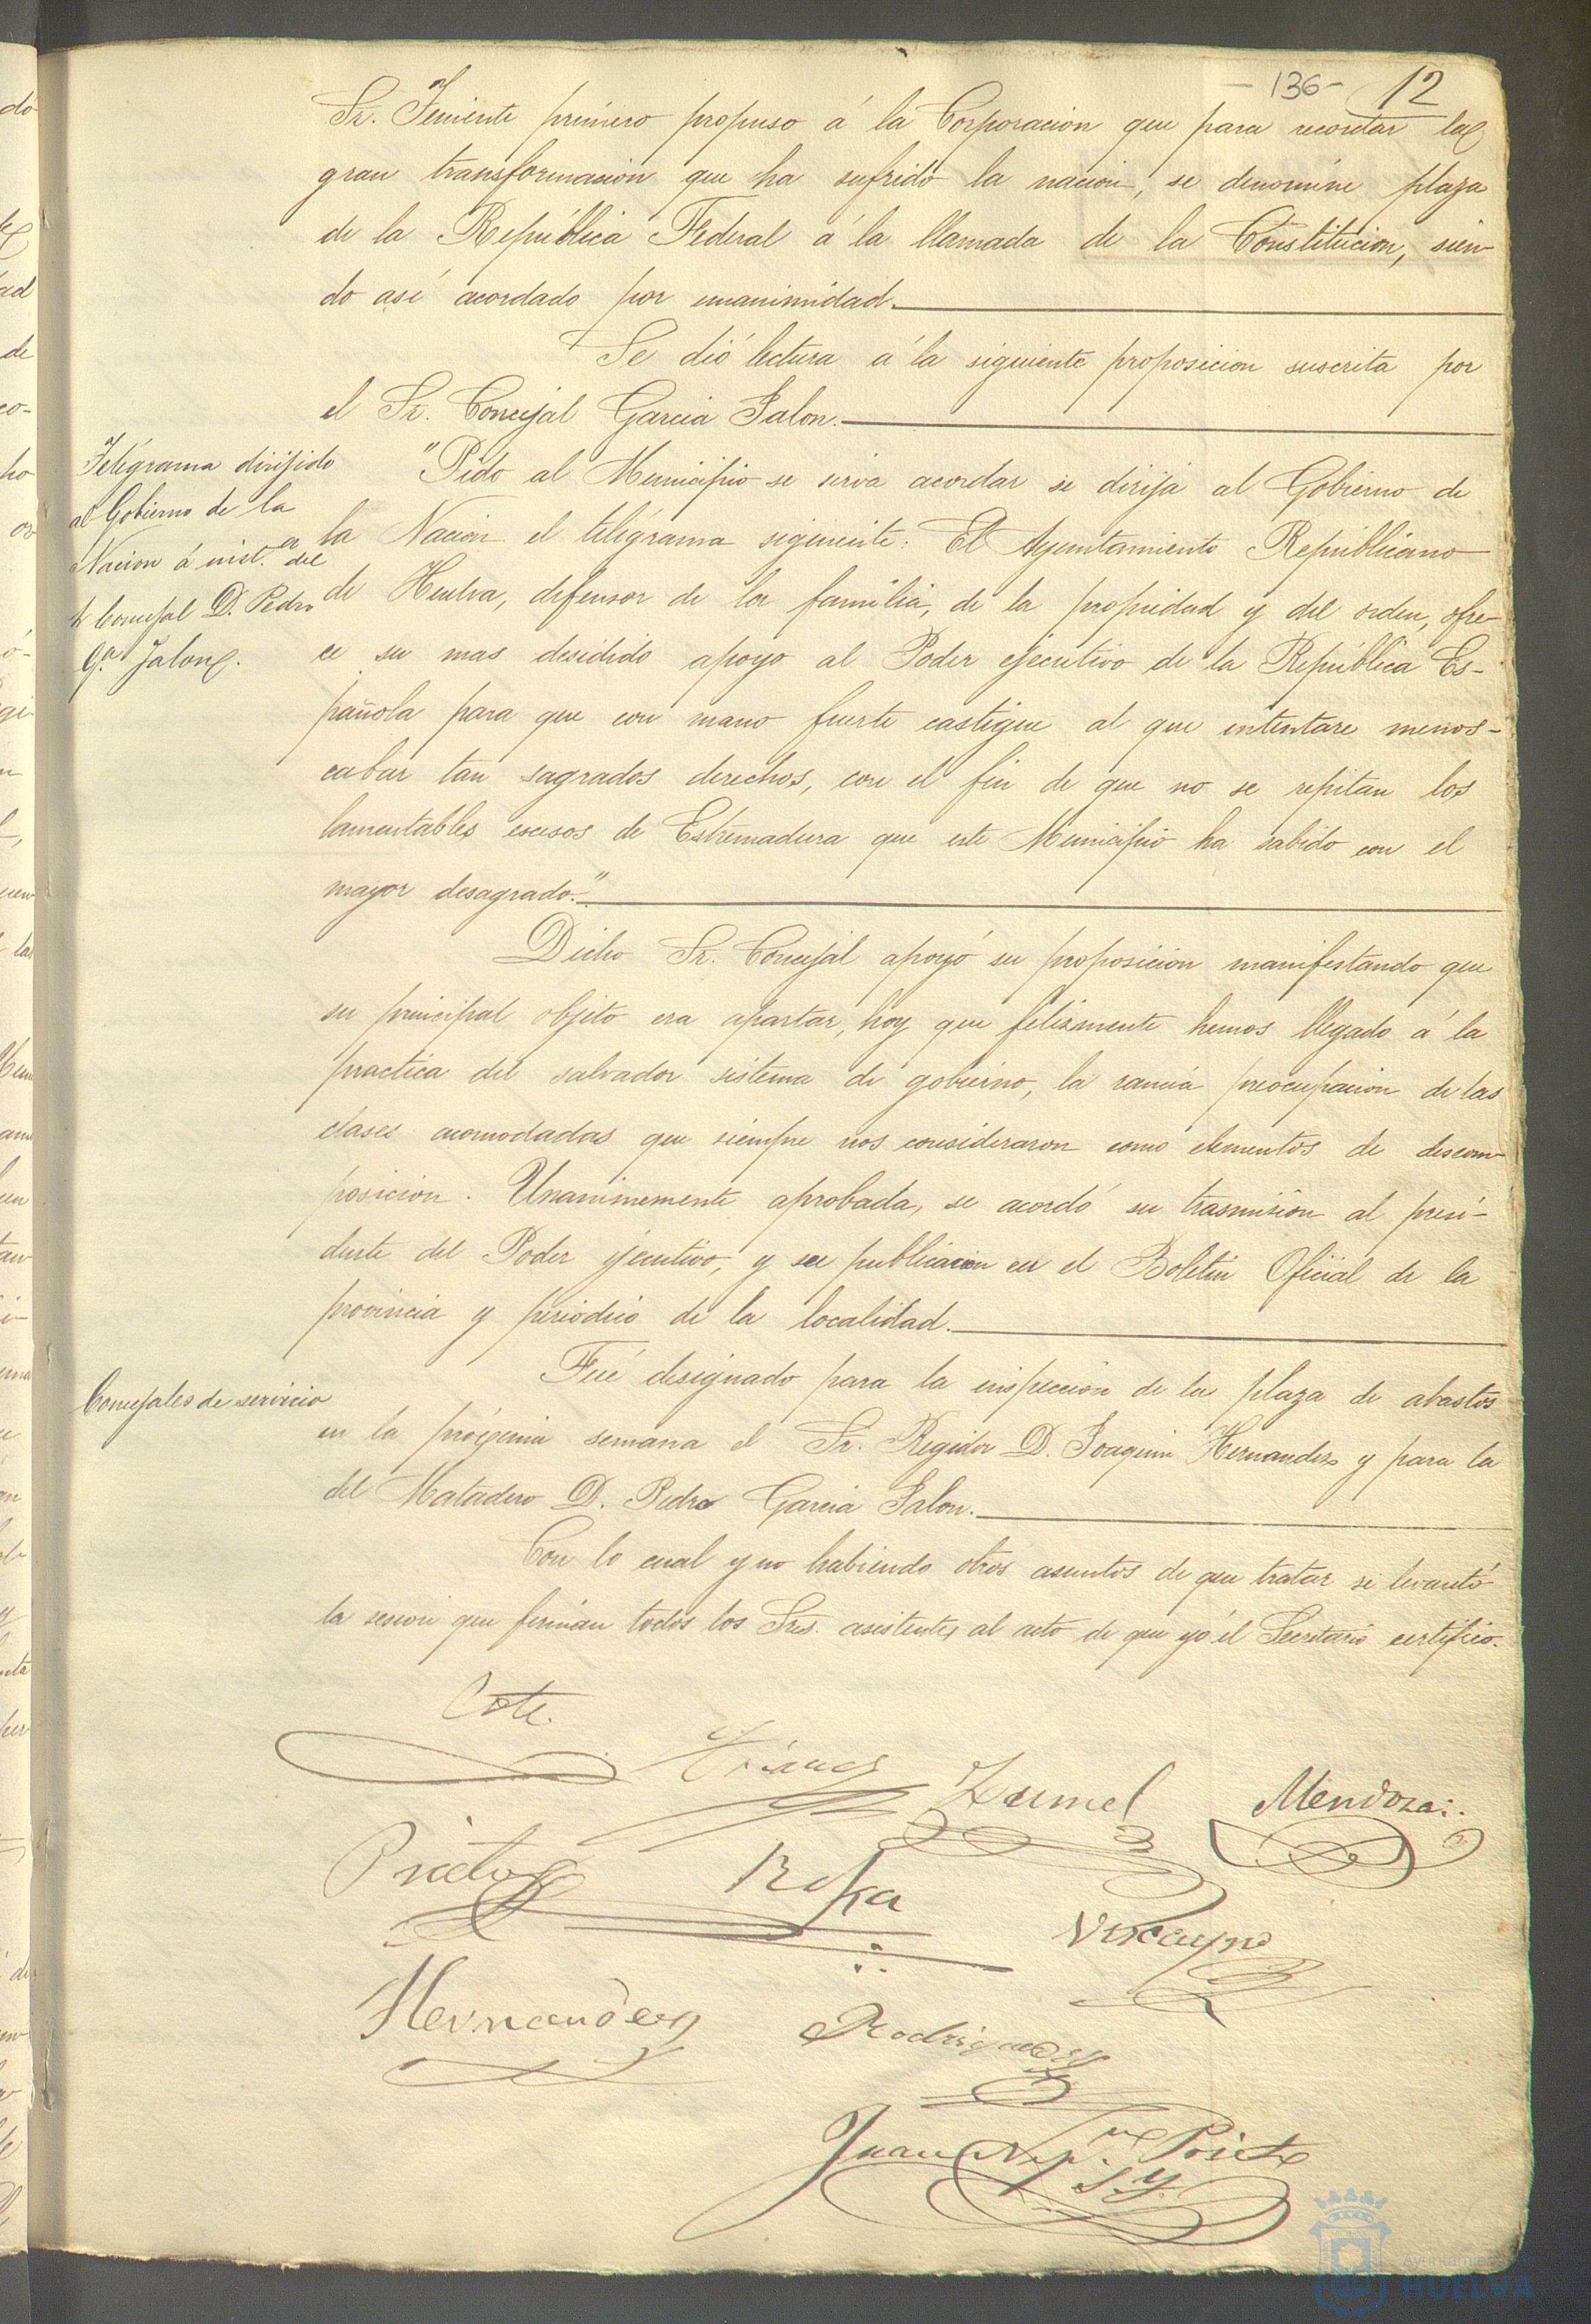 -136- 12
Sr. Teniente primero propuso á la Corporacion que para recordar la
gran transformacion que ha sufrido la nacion, se denomine plaza
de la República Federal á la llamada de la Constitucion, sien-
do asi acordado por unanimidad.
Se dió lectura á la siguiente proposicion suscrita por
el Sr. Concejal Garcia Jalon.
Telégrama dirijido
al Gobierno de la
Nacion á inst.a del
Sr Concejal D. Pedro
G.a Jalon.
"Pido al Municipio se sirva acordar se dirija al Gobierno de
la Nacion el telégrama siguiente: El Ayuntamiento Republicano
de Huelva, defensor de la familia, de la propiedad y del orden, ofre-
ce su mas desidido apoyo al Poder ejecutivo de la República Es-
pañola para que con mano fuerte castigue al que intentare menos-
cabar tan sagrados derechos, con el fin de que no se repitan los
lamentables escesos de Estremadura que este Municipio ha sabido con el
mayor desagrado."
Dicho Sr. Concejal apoyó su proposicion manifestando que
su principal objeto era apartar, hoy que felizmente hemos llegado á la
practica del salvador sistema de gobierno, la rancia preocupacion de las
clases acomodadas que siempre nos consideraron como elementos de descom-
posicion. Unanimemente aprobada, se acordó su trasmision al presi-
dente del Poder ejecutivo, y su publicacion en el Boletin Oficial de la
provincia y periodico de la localidad.
Concejales de servicio
Fué designado para la inspeccion de la plaza de abastos
en la prógsima semana el Sr. Regidor D. Joaquin Hernandez y para la
del Matadero D. Pedro Garcia Jalon.
Con lo cual y no habiendo otros asuntos de que tratar se levantó
la sesion que firman todos los Sres. asistentes al acto de que yo el Secretario certifico.
Cote
Zumel
Mendoza
Prieto
Roka
Viscayno
Hernandez
Rodriguez
Juan Nep.no Prieto
Sy
Ayuntamiento de
HUELVA